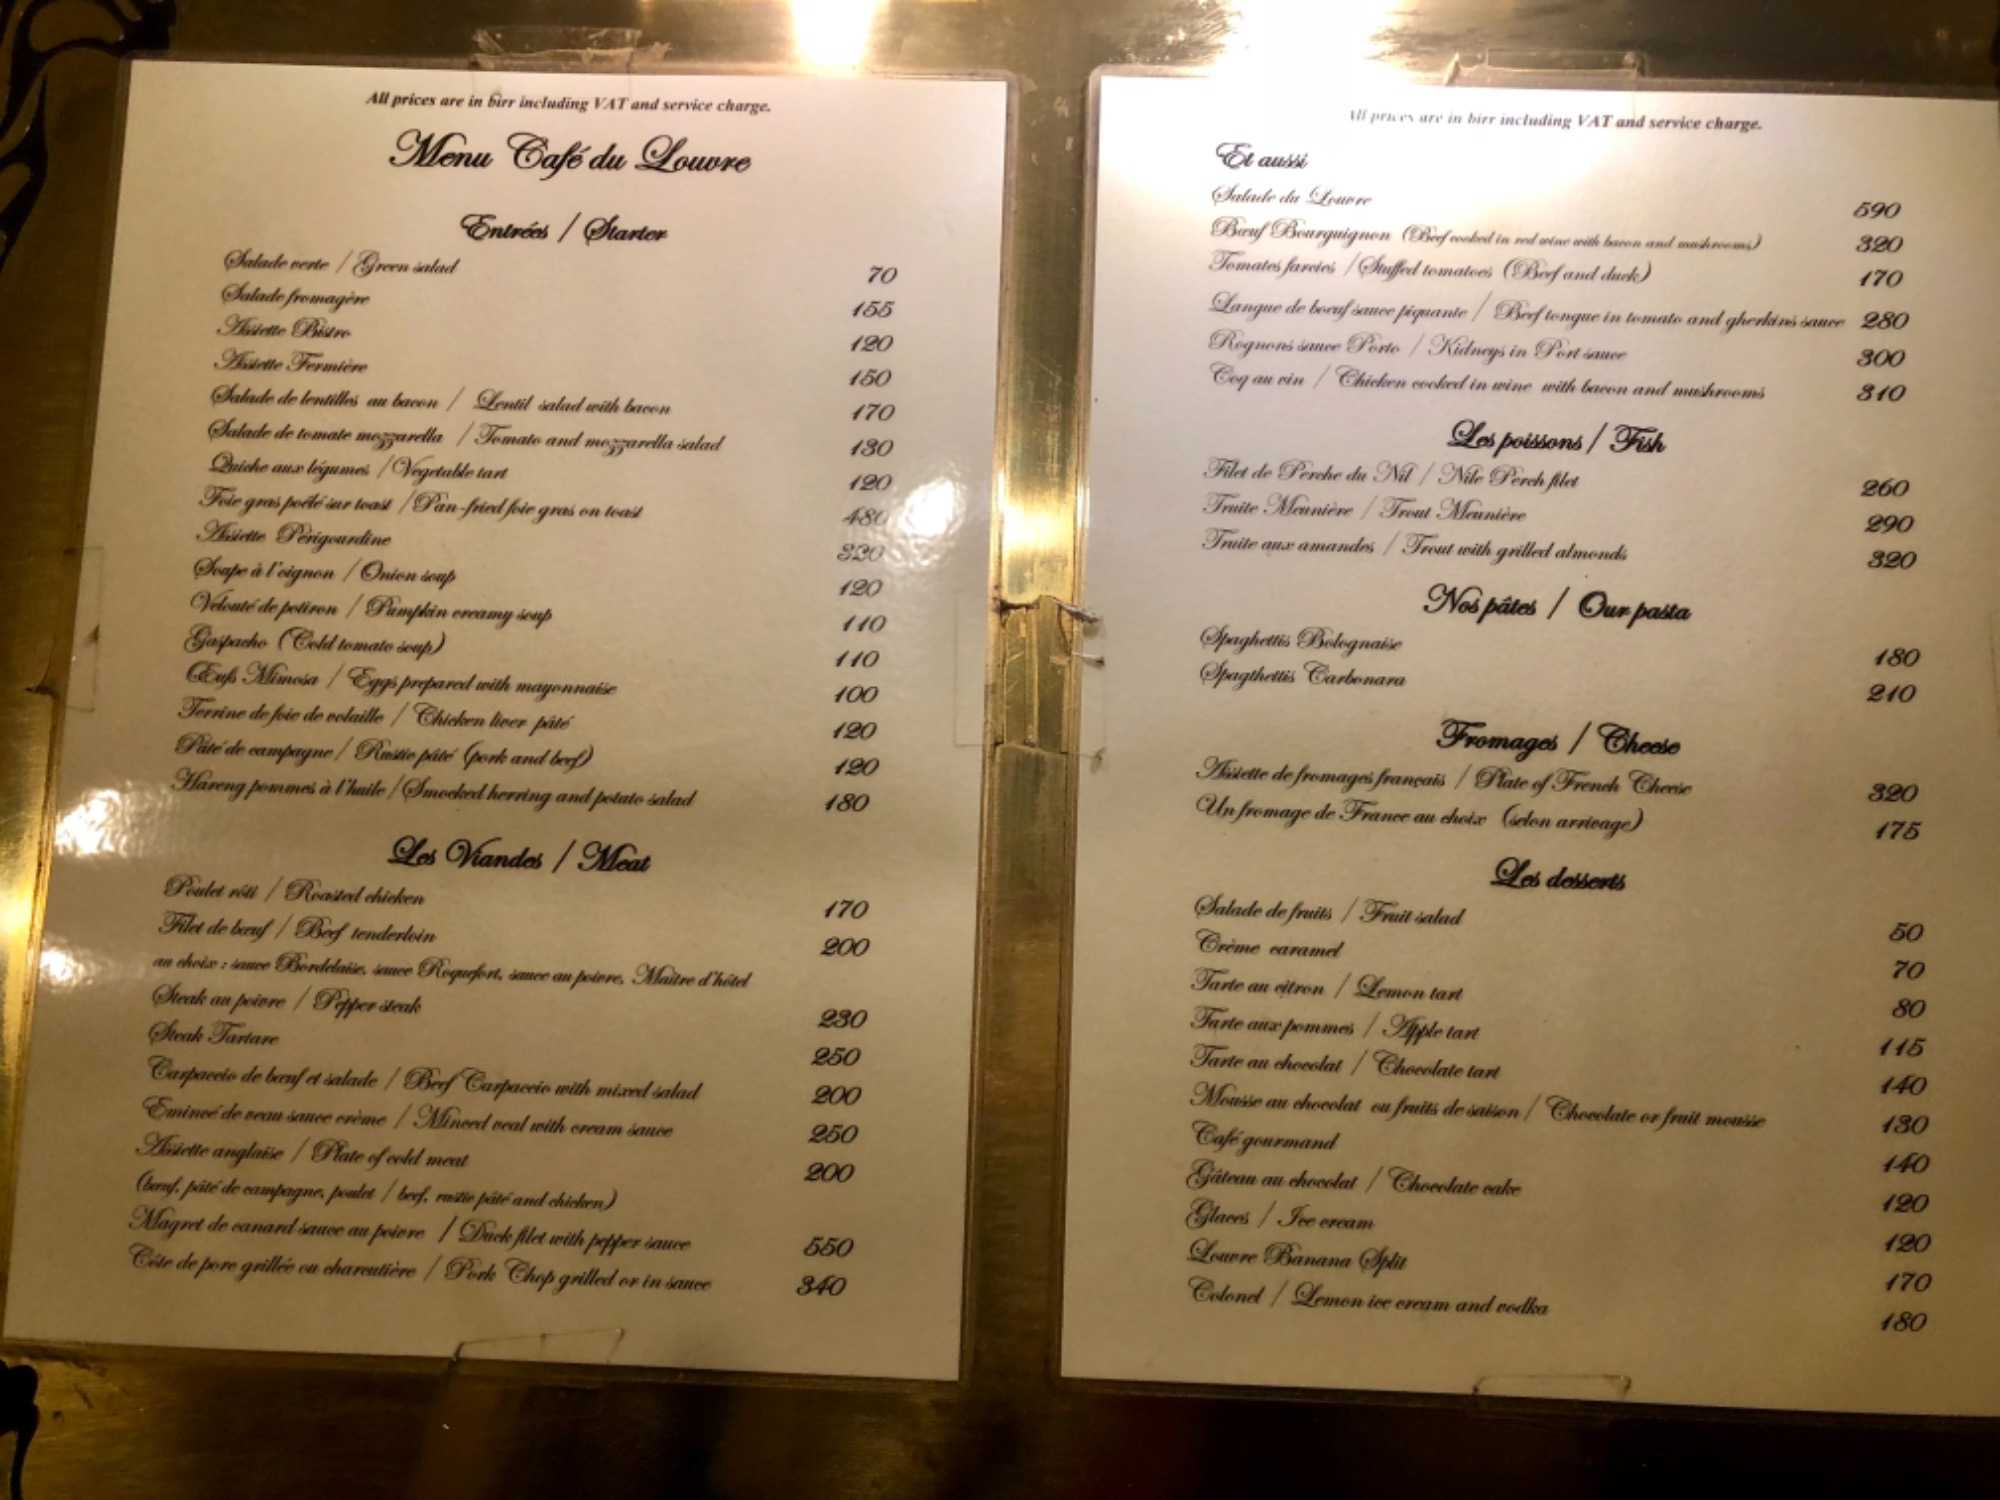 All prices are in birr including VAT and service charge.
Menu Café du Louvre
Entrées / Starter
Salade verte / Green salad 70
Salade fromagère 155
Assiette Bistro 120
Assiette Fermière 150
Salade de lentilles au bacon / Lentil salad with bacon 170
Salade de tomate mozzarella / Tomato and mozzarella salad 130
Quiche aux légumes / Vegetable tart 120
Foie gras poêlé sur toast / Pan-fried foie gras on toast 480
Assiette Périgourdine 320
Soupe à l'oignon / Onion soup 120
Velouté de potiron / Pumpkin creamy soup 110
Gaspacho (Cold tomato soup) 110
Œufs Mimosa / Eggs prepared with mayonnaise 100
Terrine de foie de volaille / Chicken liver pâté 120
Pâté de campagne / Rustic pâté (pork and beef) 120
Hareng pommes à l'huile / Smocked herring and potato salad 180
Les Viandes / Meat
Poulet rôti / Roasted chicken 170
Filet de bœuf / Beef tenderloin 200
au choix : sauce Bordelaise, sauce Roquefort, sauce au poivre, Maître d'hôtel
Steak au poivre / Pepper steak 230
Steak Tartare 250
Carpaccio de bœuf et salade / Beef Carpaccio with mixed salad 200
Emincé de veau sauce crème / Minced veal with cream sauce 250
Assiette anglaise / Plate of cold meat 200
(bœuf, pâté de campagne, poulet / beef, rustic pâté and chicken)
Magret de canard sauce au poivre / Duck filet with pepper sauce 550
Côte de porc grillée ou charcutière / Pork Chop grilled or in sauce 340
All prices are in birr including VAT and service charge.
Et aussi
Salade du Louvre 590
Bœuf Bourguignon (Beef cooked in red wine with bacon and mushrooms) 320
Tomates farcies / Stuffed tomatoes (Beef and duck) 170
Langue de bœuf sauce piquante / Beef tongue in tomato and gherkins sauce 280
Rognons sauce Porto / Kidneys in Port sauce 300
Coq au vin / Chicken cooked in wine with bacon and mushrooms 310
Les poissons / Fish
Filet de Perche du Nil / Nile Perch filet 260
Truite Meunière / Trout Meunière 290
Truite aux amandes / Trout with grilled almonds 320
Nos pâtes / Our pasta
Spaghettis Bolognaise 180
Spagthettis Carbonara 210
Fromages / Cheese
Assiette de fromages français / Plate of French Cheese 320
Un fromage de France au choix (selon arrivage) 175
Les desserts
Salade de fruits / Fruit salad 50
Crème caramel 70
Tarte au citron / Lemon tart 80
Tarte aux pommes / Apple tart 115
Tarte au chocolat / Chocolate tart 140
Mousse au chocolat ou fruits de saison / Chocolate or fruit mousse 130
Café gourmand 140
Gâteau au chocolat / Chocolate cake 120
Glaces / Ice cream 120
Louvre Banana Split 170
Colonel / Lemon ice cream and vodka 180